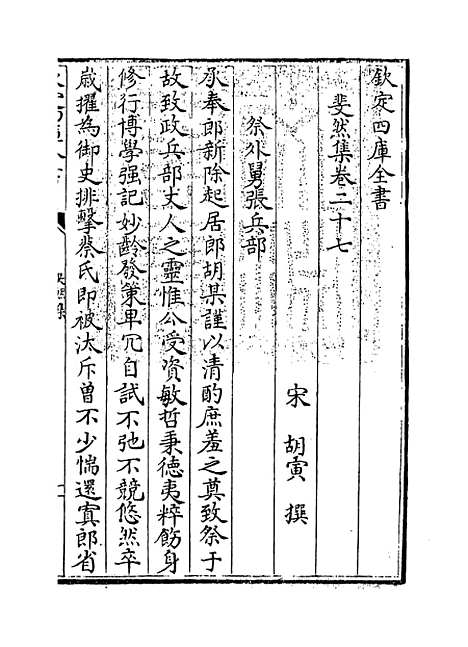 欽定四庫全書
斐然集卷二十七
宋 胡寅 撰
祭外舅張兵部
承奉郎新除起居郎胡某謹以清酌庶羞之奠致祭于
故致政兵部丈人之靈惟公受資敏哲秉德夷粹飭身
修行博學强記妙齡發策卑冗自試不弛不競悠然卒
歲擢為御史排擊蔡氏即被汰斥曾不少惴還寘郎省